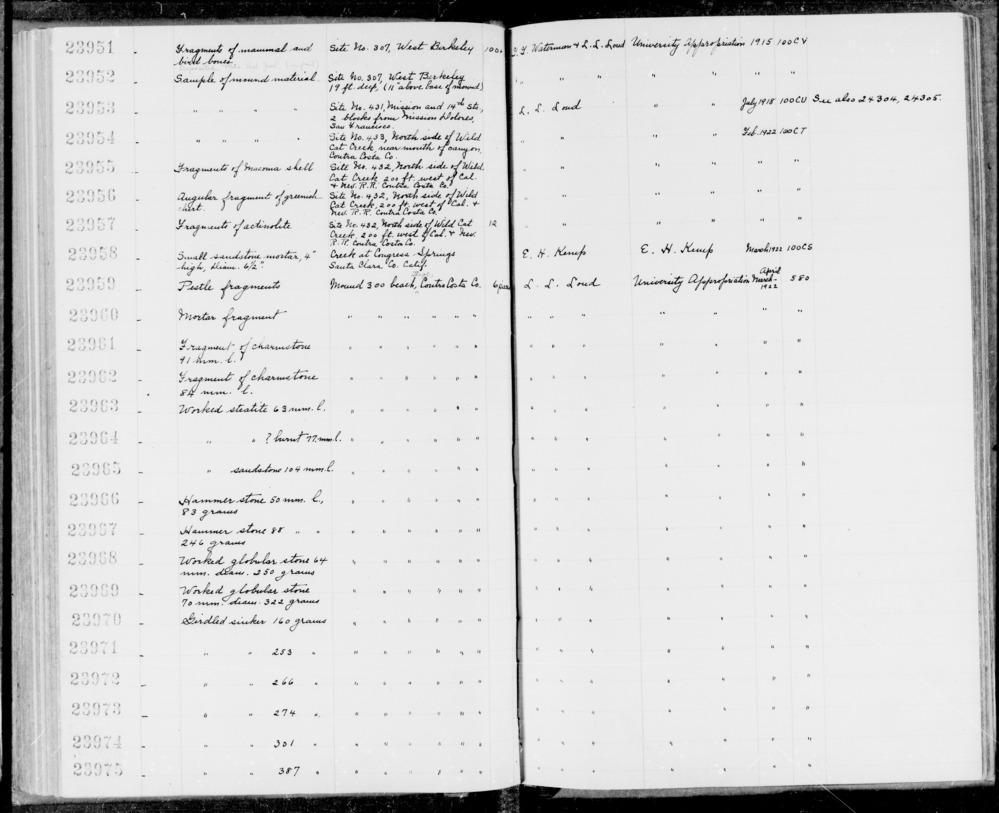 23951 - Fragments of mammal and Site No. 307, West Berkeley 100+ T. T. Waterman & L. L. Loud University Appropriation 1915 100CV
bird bones
23952 - Sample of mound material Site No. 307, West Berkeley " " " " " " " "
19 ft. deep, (11" above base of mound)
23953 - " " " " Site No. 431, Mission and 14th Sts., L. L. Loud " " July 1918 100CU See also 24304, 24305.
2 blocks from Mission Dolores,
San Francisco
23954 - " " " " Site No. 433, North side of Wild " " " Feb. 1922 100CT
Cat Creek near mouth of canyon,
Contra Costa Co.
23955 - Fragments of Macoma shell Site No. 432, North side of Wild " " " " "
Cat Creek 200 ft. west of Cal.
& Nev. R.R. Contra Costa Co.
23956 - Angular fragment of greenish Site No. 432, North side of Wild " " " " "
chert. Cat Creek, 200 ft. west of Cal. &
Nev. R. R. Contra Costa Co.
23957 - Fragments of actinolite Site No. 432, North side of Wild Cat 12 " " " " "
Creek, 200 ft. west of Cal. & Nev.
R. R. Contra Costa Co.
23958 - Small sandstone mortar, 4" Creek at Congress Springs E. H. Kemp E. H. Kemp March 1922 100CS
high, diam. 6½" Santa Clara Co. Calif.
23959 - Pestle fragments Mound 300 beach, Contra Costa Co. 6 L. L. Loud University Appropriation April March- 1922 580
23960 Mortar fragment " " " " " " " " " " " " "
23961 - Fragment of charmstone " " " " " " " " " " " " "
41 mm. l.
23962 - Fragment of charmstone " " " " " " " " " " " " "
84 mm. l.
23963 - Worked steatite 63 mm. l. " " " " " " " " " " " " "
23964 - " " ? burnt 77 mm. l. " " " " " " " " " " " " "
23965 - " sandstone 104 mm. l. " " " " " " " " " " " " "
23966 - Hammer stone 50 mm. l., " " " " " " " " " " " " "
83 grams
23967 - Hammer stone 88 " " " " " " " " " " " " " " "
246 grams
23968 - Worked globular stone 64 " " " " " " " " " " " " "
mm. diam. 250 grams
23969 - Worked globular stone " " " " " " " " " " " " "
70 mm. diam. 322 grams
23970 - Girdled sinker 160 grams " " " " " " " " " " " " "
23971 - " " 253 " " " " " " " " " " " " " "
23972 - " " 266 " " " " " " " " " " " " " "
23973 - " " 274 " " " " " " " " " " " " " "
23974 - " " 301 " " " " " " " " " " " " " "
23975 - " " 387 " " " " " " " " " " " " " "